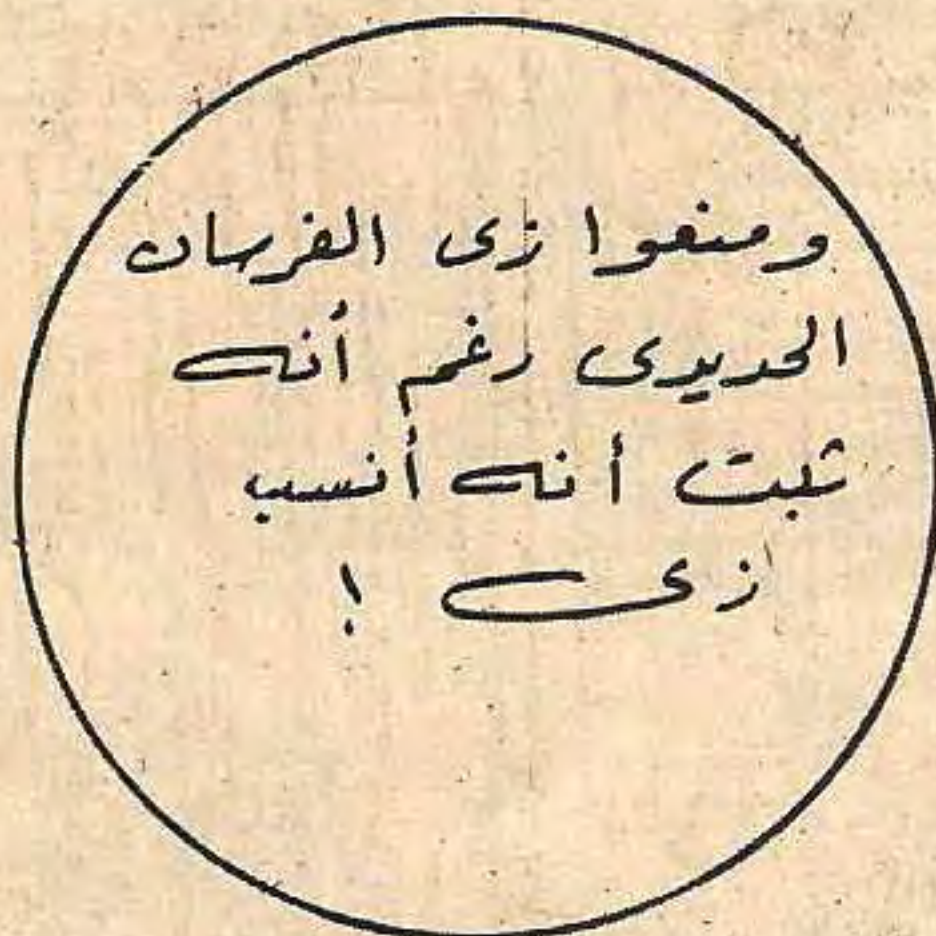 ومنعوا زى الفرسان
الحديدى رغم أنه
ثبت أنه أنسب
زى !